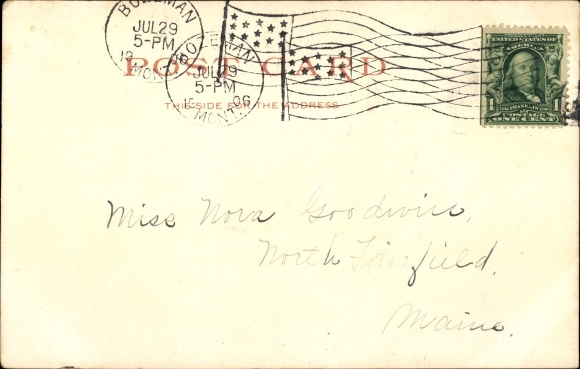 BOZEMAN
JUL 29
5-PM
MONT.
BOZEMAN
JUL 29
5-PM
MONT. 06
POST CARD
THIS SIDE FOR THE ADDRESS.
UNITED STATES OF
AMERICA
1 FRANKLIN 1
POSTAGE
ONE CENT
Miss Nora Goodwin,
North Fairfield,
Maine.